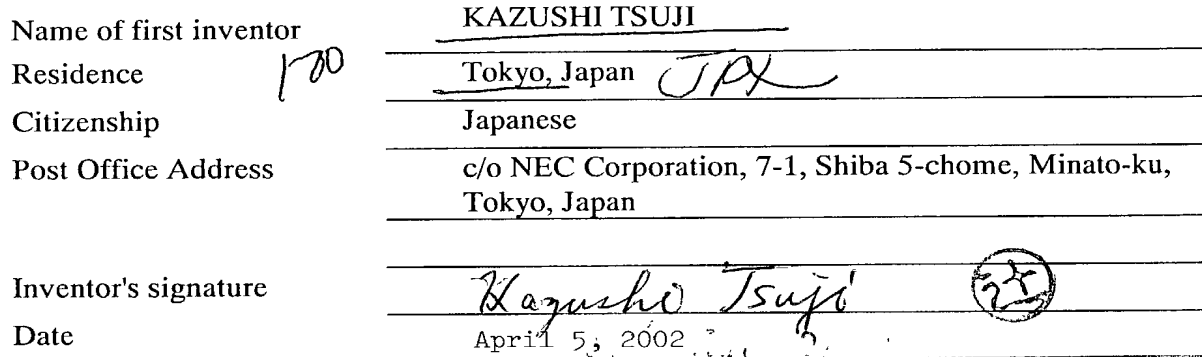 Name of first inventor KAZUSHI TSUJI
Residence 1-00 Tokyo, Japan JPX
Citizenship Japanese
Post Office Address c/o NEC Corporation, 7-1, Shiba 5-chome, Minato-ku,
Tokyo, Japan
Inventor's signature Kazushi Tsuji
Date April 5, 2002